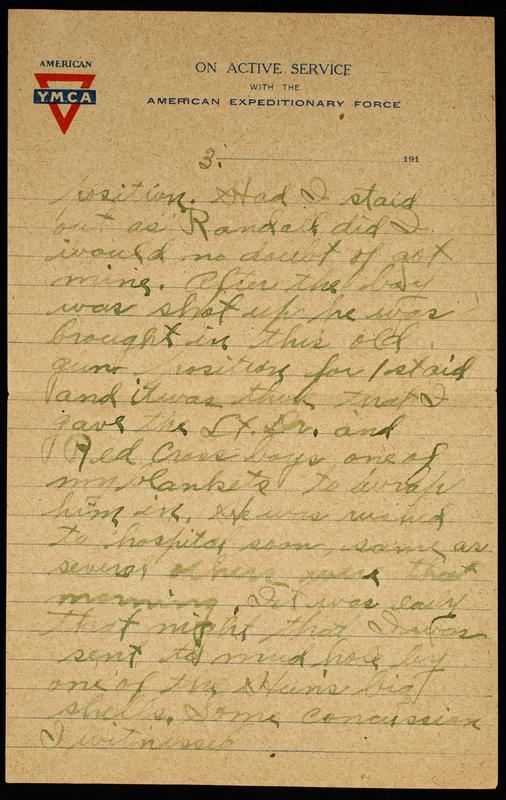 AMERICAN
YMCA
ON ACTIVE SERVICE
WITH THE
AMERICAN EXPEDITIONARY FORCE
3. 191
position. Had I staid
out as Randall did I
would no doubt of got
mine. After the boy
was shot up he was
brought in this old
gun position for 1 staid
and it was then that I
gave the Lt. Dr. and
Red Cross boys one of
my blankets to wrap
him in. He was rushed
to hospital soon, same as
several others were that
morning. It was early
that night that I was
sent to mud hole by
one of the Hun's big
shells. Some concussion
I witnessed